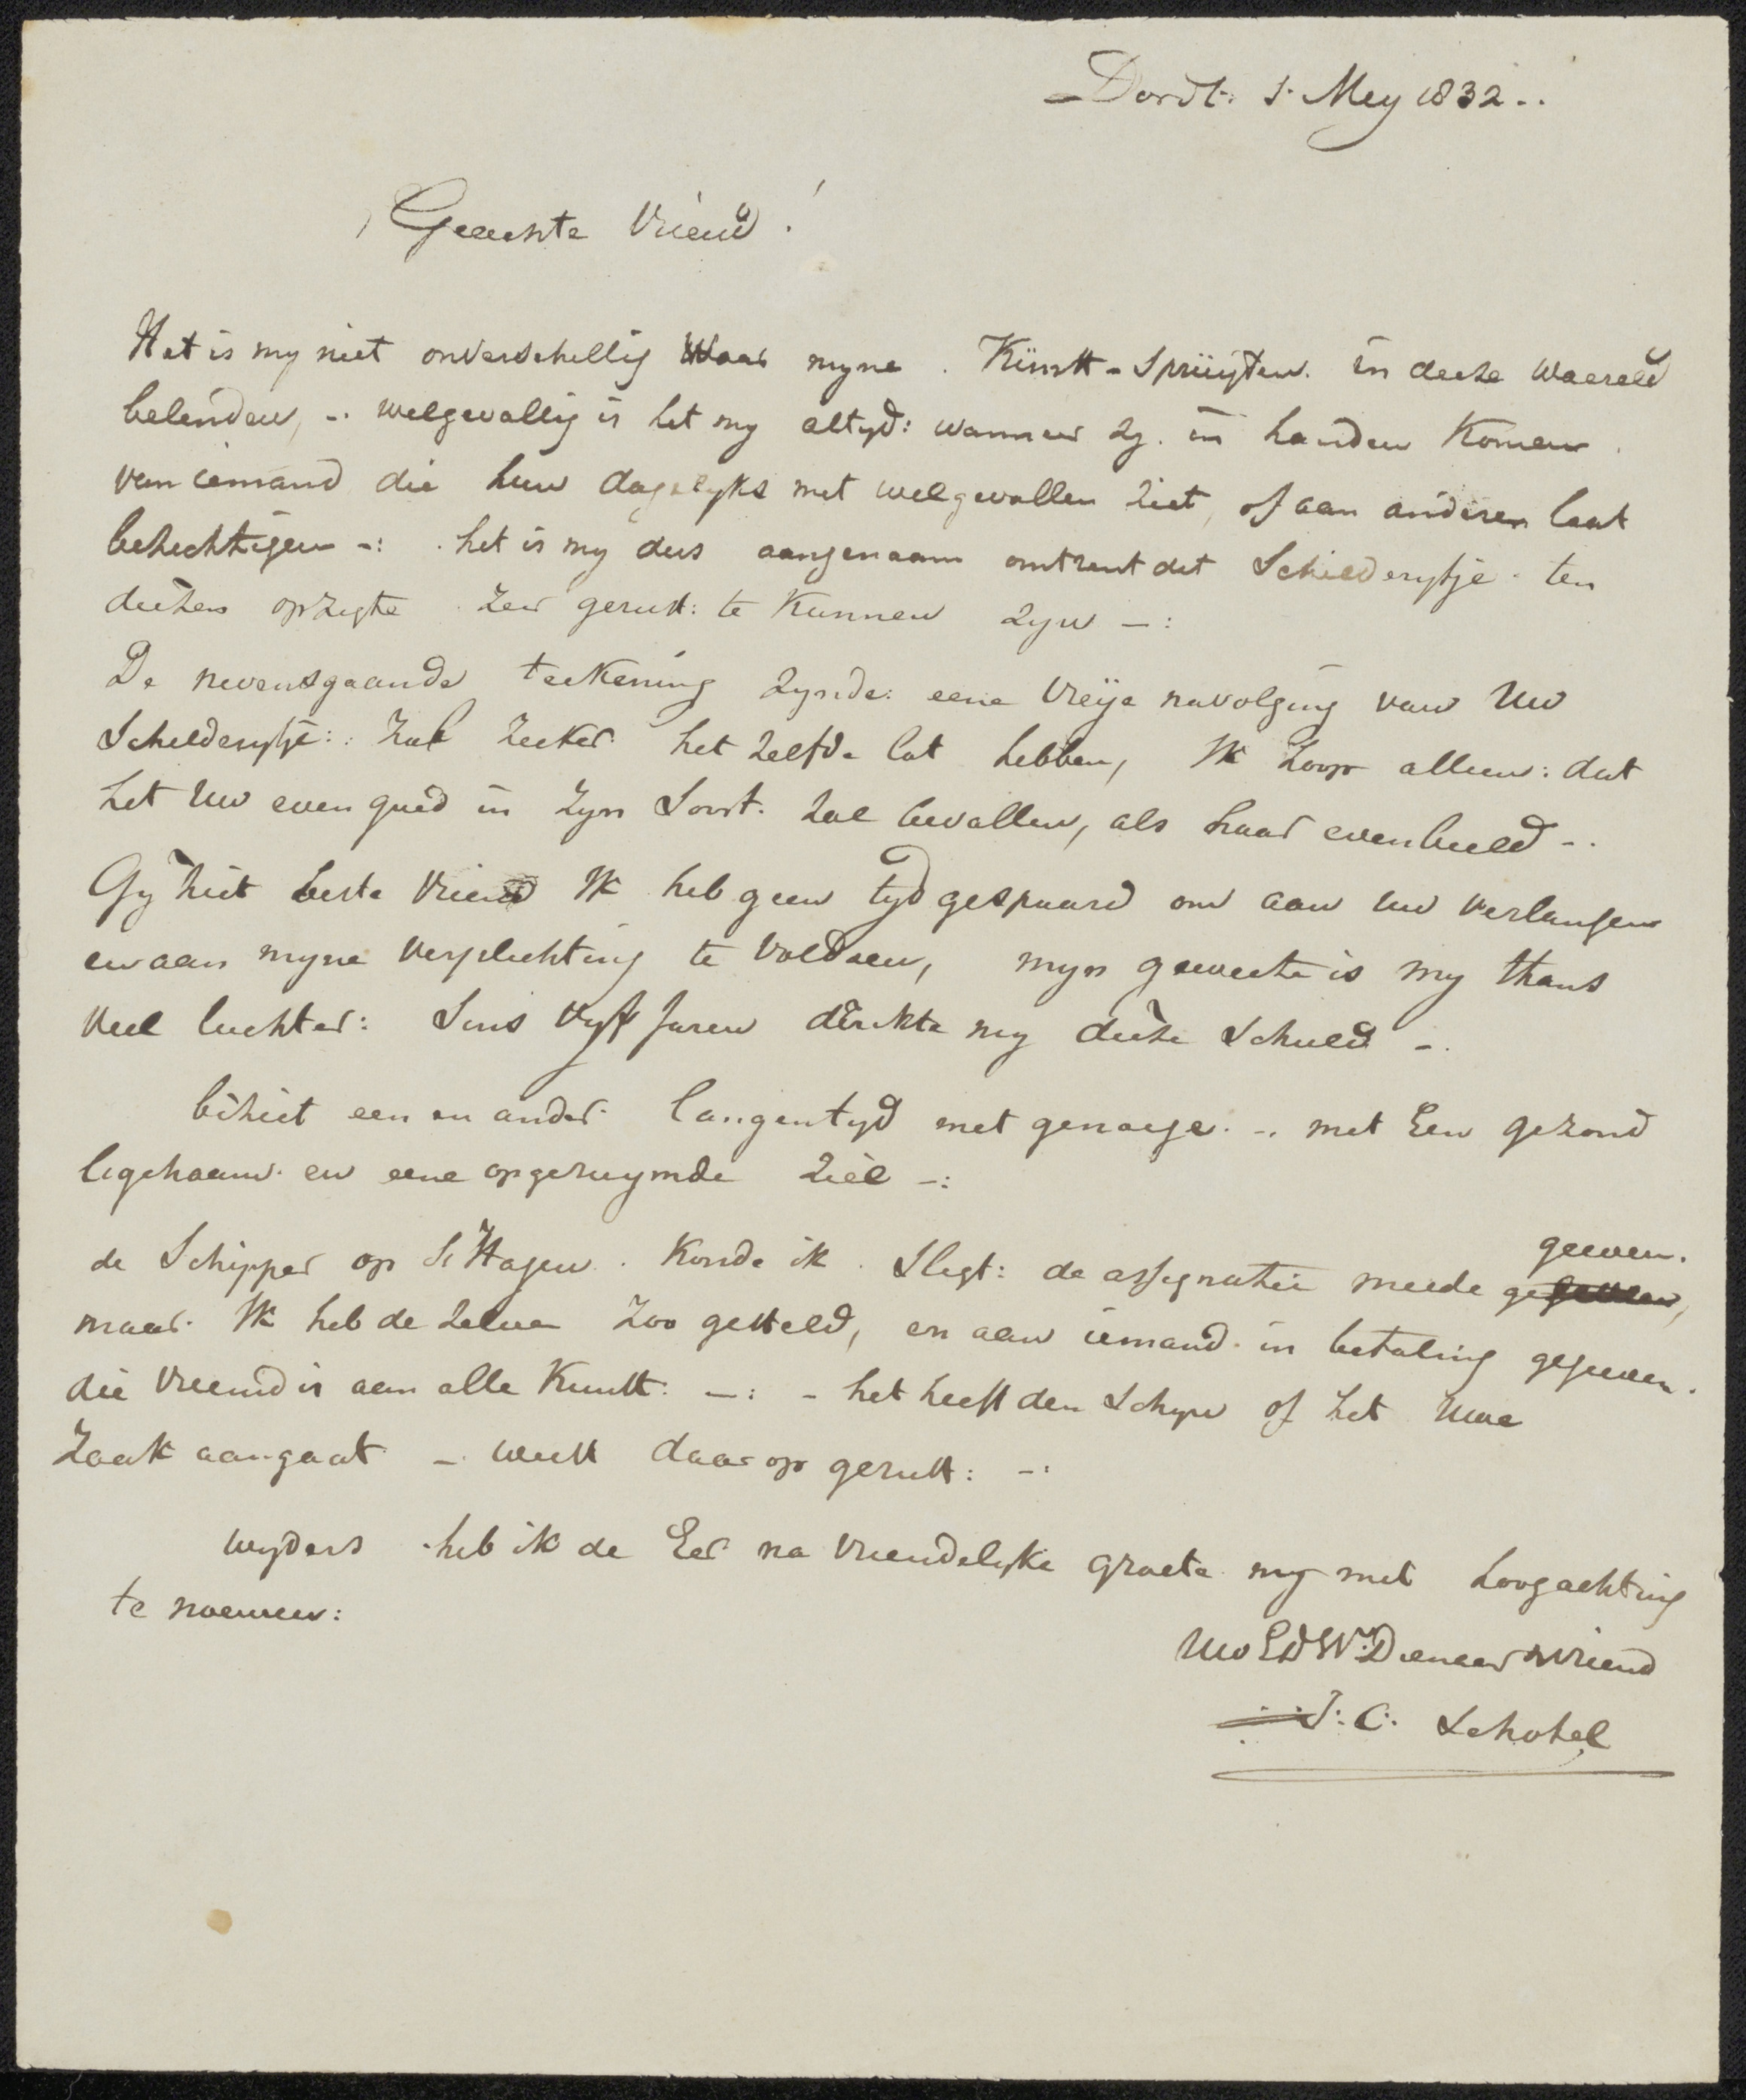 Dordt: 5. Mey 1832 -.
Geeerste Vriend!
Het is my niet onverschellig waar myne. Kunst-Spruyten in deeze Waereld
belenden, -. welgevallig is het my altyd: wanneer zy. in handen komen
van iemand die hun dagelyks met welgevallen ziet, of aan anderen laat
bezechtigen -: . het is my dus aangenaam omtrent dit Schilderytje. ten
deezen opzigte. zeer gerust: te kunnen zyn -:
De nevensgaande teekening zynde: eene vreije navolging van Uw
Schilderytje: : zal zeeker het zelfde lot hebben, Ik hoop alleen: dat
het Uw even goed in zyn Soort. zal bevallen, als haar evenbeeld -.
Gy ziet beste Vriend Ik heb geen tyd gespaard om aan uw verlangen
en aan myne verplichting te voldoen, myn geweete is my thans
veel luchter: Sins vyf Jaren drukte my deeze Schuld -.
beziet een en ander langentyd met genoege. -. met Een gezond
ligchaam. en eene opgeruymde ziel -:
de Schipper op S: Hagen. Konde ik. Slegt: de assignatie meede ge geeven.
maar. Ik heb de zelve zoo gesteld, en aan iemand. in betaling gegeeven.
die vreemd is aan alle Kunst. -: - het heeft den Schyn of het Uwe
Zaak aangaat -. weest daar op gerust: -:
wyders heb ik de Eer na vriendelyke groete my met hoogachting
te noemen:
Uw EdW: Dienaar & Vriend
J: C: Schotel